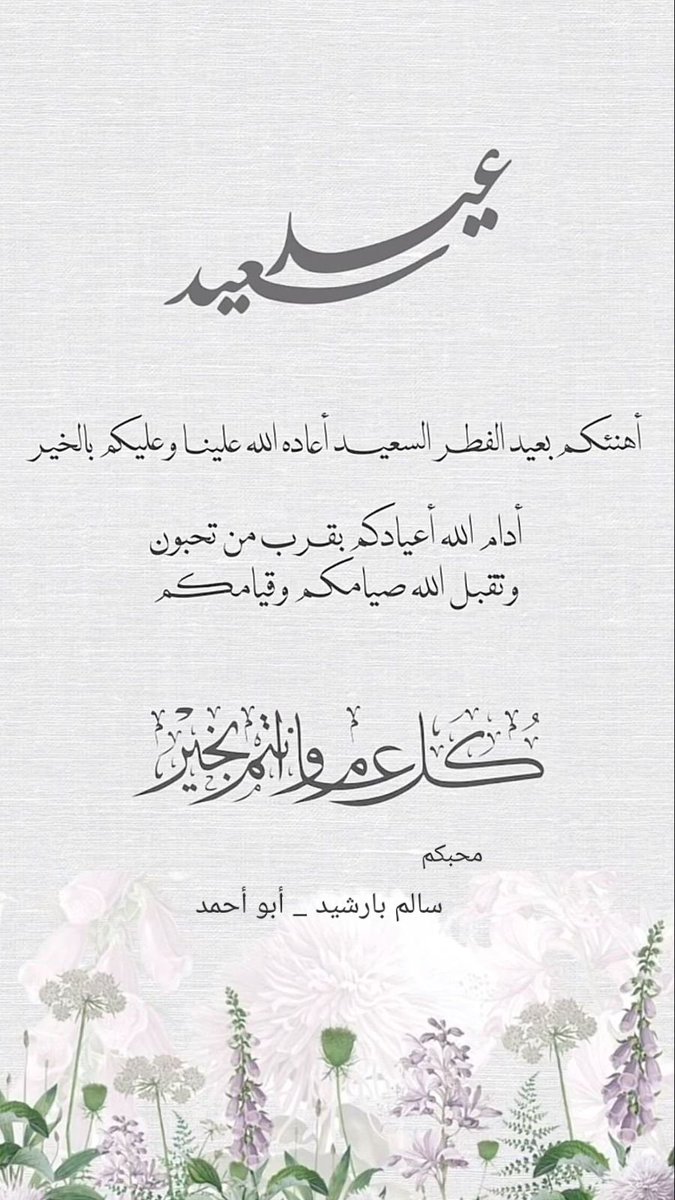 عيد سعيد
أهنئكم بعيد الفطر السعيد أعاده الله علينا وعليكم بالخير
أدام الله أعيادكم بقرب من تحبون
وتقبل الله صيامكم وقيامكم
كُل عام وانتم بخير
محبكم
سالم بارشيد _ أبو أحمد